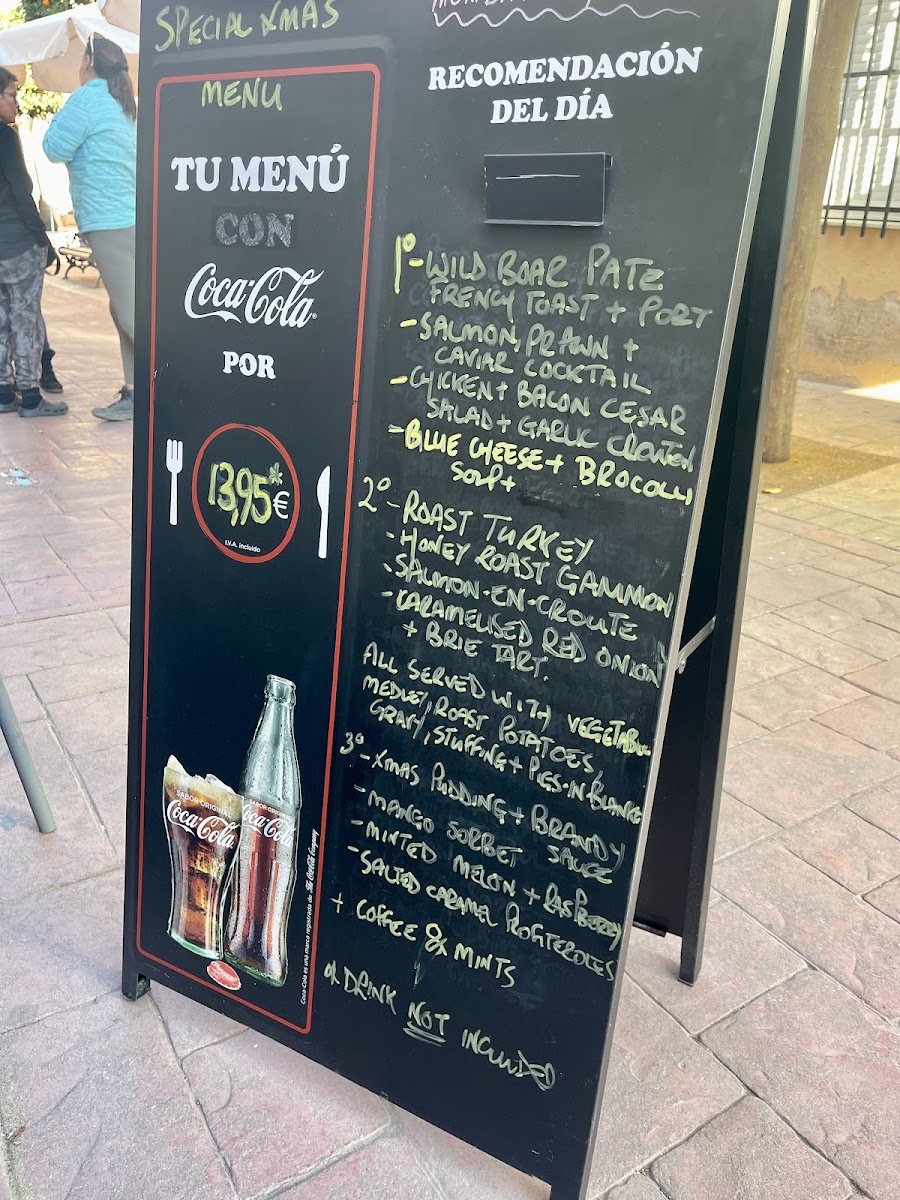 SPECIAL XMAS
MENU
TU MENÚ
CON
Coca-Cola
POR
13,95*€
I.V.A. incluido
SABOR ORIGINAL
Coca-Cola
Coca-Cola
Coca-Cola es una marca registrada de The Coca-Cola Company
RECOMENDACIÓN
DEL DÍA
1º - WILD BOAR PATE
FRENCH TOAST + PORT
- SALMON, PRAWN +
CAVIAR COCKTAIL
- CHICKEN + BACON CESAR
SALAD + GARLIC CROUTEN
- BLUE CHEESE + BROCOLLI
SOUP +
2º - ROAST TURKEY
- HONEY ROAST GAMMON
- SALMON-EN-CROUTE
- CARAMELISED RED ONION
+ BRIE TART.
ALL SERVED WITH VEGETABLE
MEDLEY, ROAST POTATOES,
GRAVY, STUFFING + PIGS-IN-BLANKE
3º - XMAS PUDDING + BRANDY
SAUCE
- MANGO SORBET
- MINTED MELON + RASPBERRY
- SALTED CARAMEL PROFITEROLES
+ COFFEE & MINTS
* DRINK NOT INCLUDED